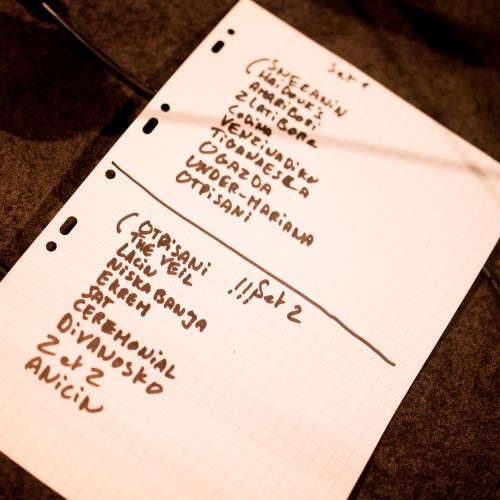 Set 1
(SNEZANIN
HAIDOUKS
AMARIBORI
ZLATIBORE
CODINO
VENZINADIKU
TIGANAESKA
UGAZDA
UNDER-MARIANA
OTPISANI
(OTPISANI
THE VEIL
LACIN
!!! Set 2
NISKA BANJA
EKREM
SAT
CEREMONIAL
DIVANOSKO
2 et 2
ANICIN